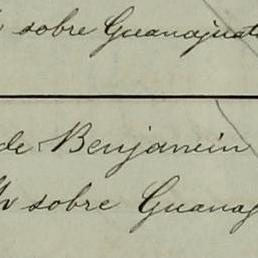 sobre Guanajuat
de Benjamin
sobre Guanaj